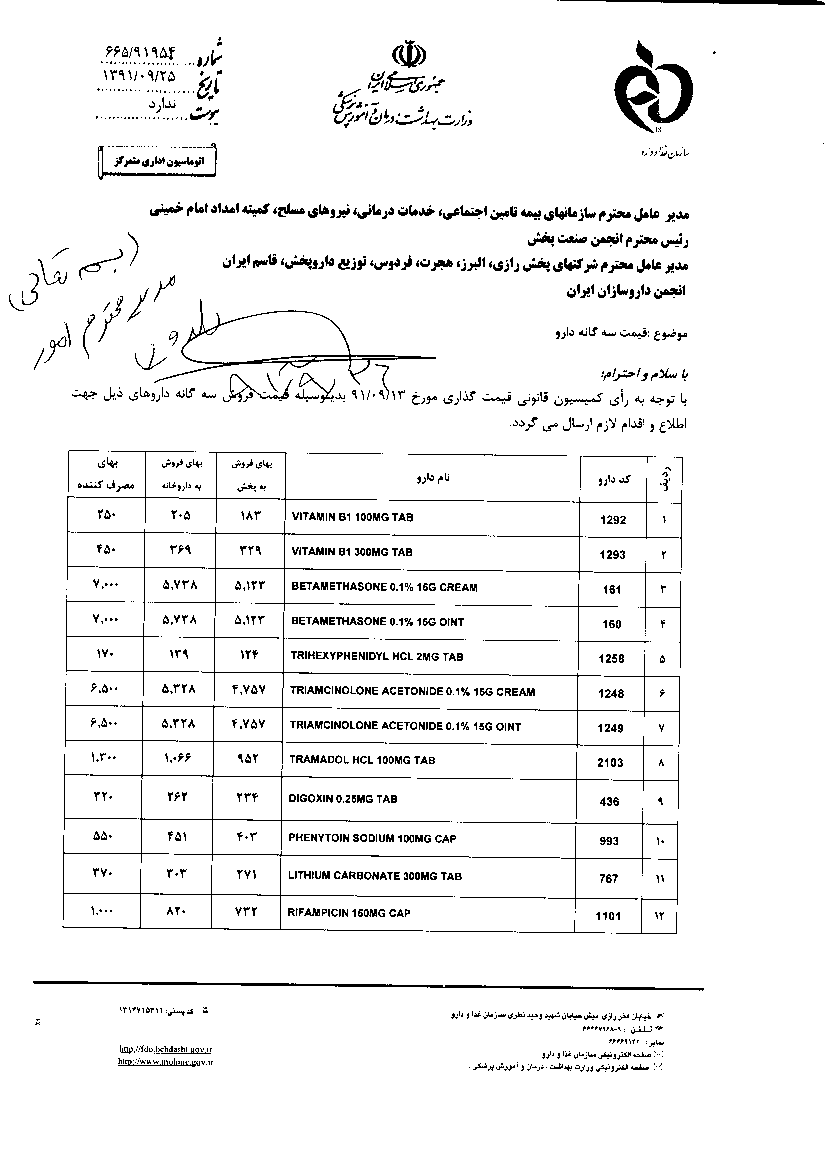 جمهوری اسلامی ایران
وزارت بهداشت، درمان و آموزش پزشکی
سازمان غذا و دارو
شماره ۶۶۵/۹۱۹۵۴
تاریخ ۱۳۹۱/۰۹/۲۵
پیوست ندارد
اتوماسیون اداری متمرکز
مدیر عامل محترم سازمانهای بیمه تامین اجتماعی، خدمات درمانی، نیروهای مسلح، کمیته امداد امام خمینی
رئیس محترم انجمن صنعت پخش
مدیر عامل محترم شرکتهای پخش رازی، البرز، هجرت، فردوس، توزیع داروپخش، قاسم ایران
انجمن داروسازان ایران
(بسم تعالی)
مدیر محترم امور
موضوع :قیمت سه گانه دارو
با سلام و احترام؛
با توجه به رأی کمیسیون قانونی قیمت گذاری مورخ ۹۱/۰۹/۱۳ بدینوسیله قیمت فروش سه گانه داروهای ذیل جهت
اطلاع و اقدام لازم ارسال می گردد.
ردیف کد دارو نام دارو بهای فروش به پخش بهای فروش به داروخانه بهای مصرف کننده
۱ 1292 VITAMIN B1 100MG TAB ۱۸۳ ۲۰۵ ۲۵۰
۲ 1293 VITAMIN B1 300MG TAB ۳۲۹ ۳۶۹ ۴۵۰
۳ 161 BETAMETHASONE 0.1% 15G CREAM ۵,۱۲۳ ۵,۷۳۸ ۷,۰۰۰
۴ 160 BETAMETHASONE 0.1% 15G OINT ۵,۱۲۳ ۵,۷۳۸ ۷,۰۰۰
۵ 1258 TRIHEXYPHENIDYL HCL 2MG TAB ۱۲۴ ۱۳۹ ۱۷۰
۶ 1248 TRIAMCINOLONE ACETONIDE 0.1% 15G CREAM ۴,۷۵۷ ۵,۳۲۸ ۶,۵۰۰
۷ 1249 TRIAMCINOLONE ACETONIDE 0.1% 15G OINT ۴,۷۵۷ ۵,۳۲۸ ۶,۵۰۰
۸ 2103 TRAMADOL HCL 100MG TAB ۹۵۲ ۱,۰۶۶ ۱,۳۰۰
۹ 436 DIGOXIN 0.25MG TAB ۲۳۴ ۲۶۲ ۳۲۰
۱۰ 993 PHENYTOIN SODIUM 100MG CAP ۴۰۳ ۴۵۱ ۵۵۰
۱۱ 767 LITHIUM CARBONATE 300MG TAB ۲۷۱ ۳۰۳ ۳۷۰
۱۲ 1101 RIFAMPICIN 150MG CAP ۷۳۲ ۸۲۰ ۱,۰۰۰
خیابان فخر رازی نبش خیابان شهید وحید نظری سازمان غذا و دارو
کد پستی: ۱۳۱۴۷۱۵۳۱۱
تلفن : ۹-۶۶۴۶۷۹۶۸
نمابر:
صفحه الکترونیکی سازمان غذا و دارو
http://fdo.behdasht.gov.ir
صفحه الکترونیکی وزارت بهداشت ، درمان و آموزش پزشکی :
http://www.mohme.gov.ir